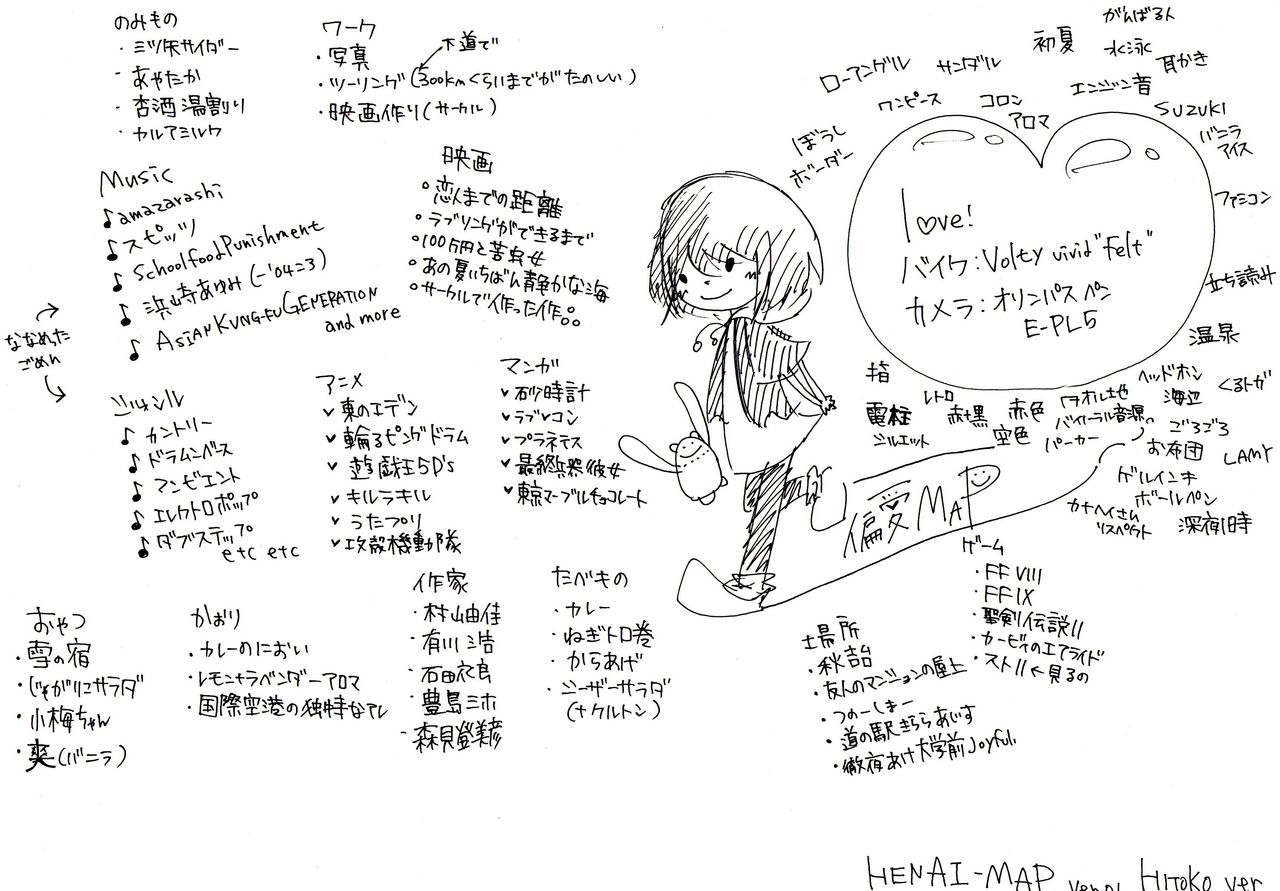 のみもの
・ミツ矢サイダー
・あやたか
・杏酒湯割り
・カルアミルク
ワーク
・写真
下道で
・ツーリング(300kmくらいまでがたのしい)
・映画作り(サークル)
Music
♪amazarashi
♪スピッツ
♪Schoolfood Punishment
♪浜崎あゆみ(-'04ニろ)
♪ASIAN KUNG-FU GENERATION
and more
ななめった
ごめん
映画
・恋人までの距離
・ラブリングができるまで
・100万円と苦虫女
・あの夏いちばん静かな海
・サークルで作った作品。
ジャンル
♪カントリー
♪ドラムンベース
♪アンビエント
♪エレクトロポップ
♪ダブステップ
etc etc
アニメ
東のエデン
輪るピングドラム
遊戯王5D's
キルラキル
うたプリ
攻殻機動隊
マンガ
砂時計
ラブ♥コン
プラネテス
最終兵器彼女
東京マーブルチョコレート
おやつ
・雪の宿
・じゃがりこサラダ
・小梅ちゃん
・爽(バニラ)
かおり
・カレーのにおい
・レモン+ラベンダーアロマ
・国際空港の独特なアレ
作家
・村山由佳
・有川浩
・石田衣良
・豊島ミホ
・森見登美彦
たべもの
・カレー
・ねぎトロ巻
・からあげ
・シーザーサラダ
(+クルトン)
ローアングル
サンダル
初夏
がんばる人
水泳
耳かき
ワンピース
コロン
アロマ
エンジン音
SUZUKI
バニラ
アイス
ぼうし
ボーダー
ファミコン
立ち読み
温泉
love!
バイク:Volty vivid"Felt"
カメラ:オリンパスペン
E-PL5
指
レトロ
電柱
シルエット
赤+黒
赤色
空色
タオル生地
バイノーラル音源
パーカー
ヘッドホン
海辺
くるトガ
ごろごろ
お布団
LAMY
ゲルインキ
ボールペン
カナヘイさん
リスペクト
深夜1時
偏愛MAP
ゲーム
・FFVIII
・FFIX
・聖剣伝説II
・カービィのエアライド
・ストII←見るの
場所
・秋吉台
・友人のマンションの屋上
・つのーしまー
・道の駅きららあじす
・徹夜あけ大学前Joyful
HENAI-MAP ver.01 HITOKO ver